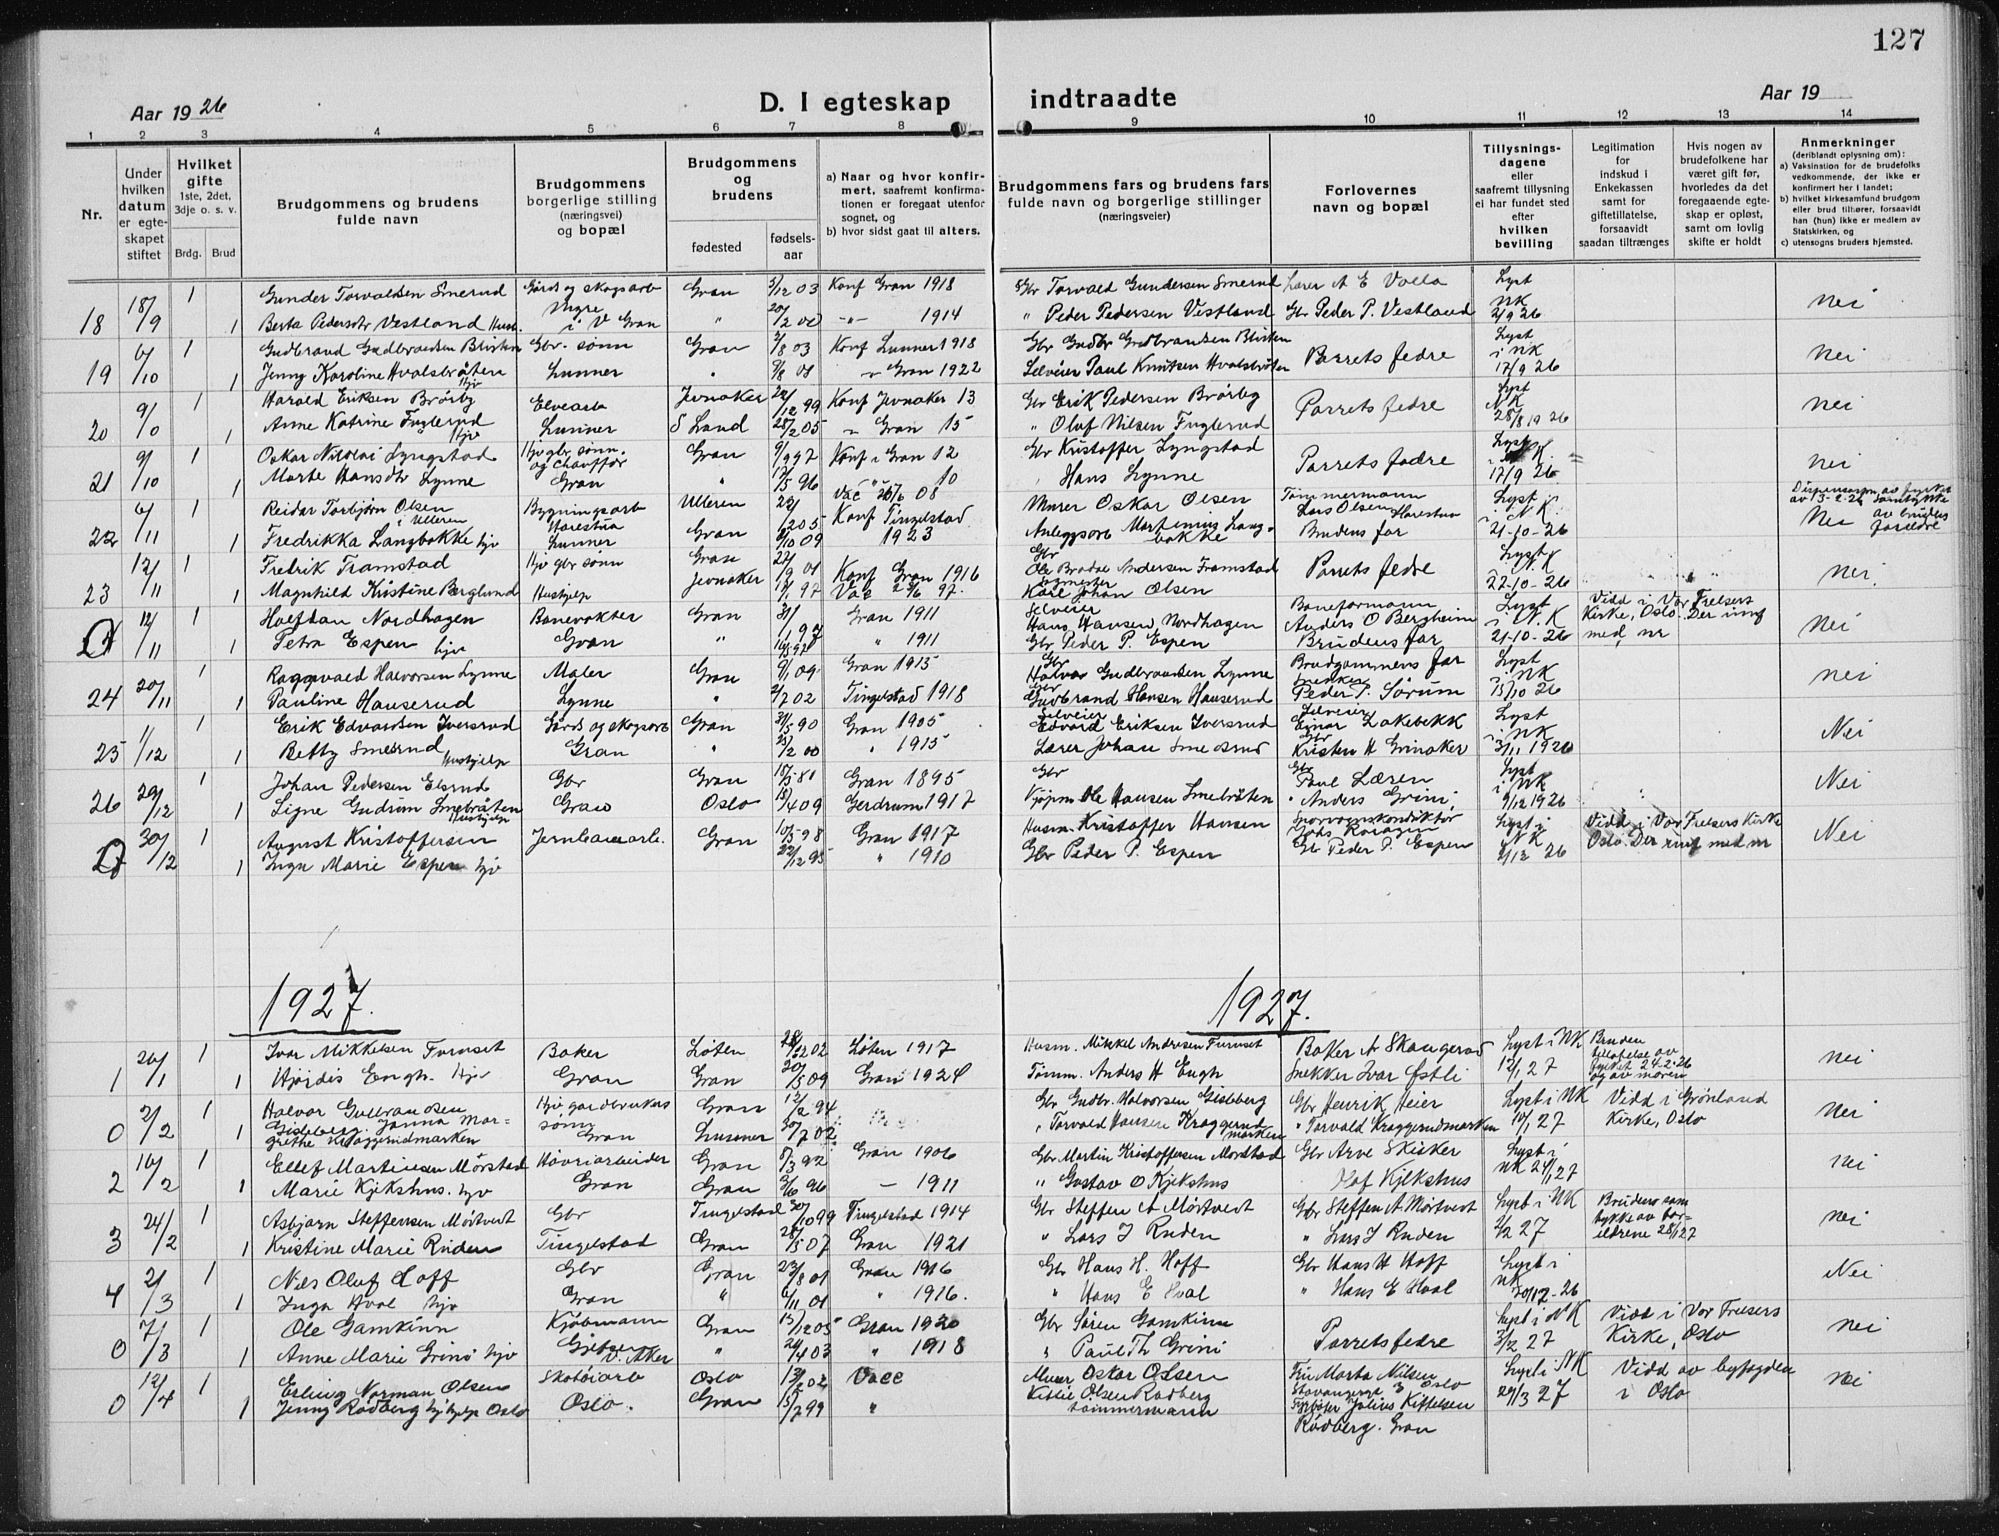 127
Aar 1926
D. I egteskap indtraadte
Aar 19
1 2 3 4 5 6 7 8 9 10 11 12 13 14
Nr.
Under hvilken datum er egteskapet stiftet
Hvilket gifte 1ste, 2det, 3dje o. s. v.
Brdg. Brud
Brudgommens og brudens fulde navn
Brudgommens borgerlige stilling (næringsvei) og bopæl
Brudgommens og brudens
fødested
fødselsaar
a) Naar og hvor konfirmert, saafremt konfirmationen er foregaat utenfor sognet, og
b) hvor sidst gaat til alters.
Brudgommens fars og brudens fars fulde navn og borgerlige stillinger (næringsveier)
Forlovernes navn og bopæl
Tillysningsdagene eller saafremt tillysning ei har fundet sted efter hvilken bevilling
Legitimation for indskud i Enkekassen samt for giftetillatelse, forsaavidt saadan tiltrænges
Hvis nogen av brudefolkene har været gift før, hvorledes da det foregaaende egteskap er opløst, samt om lovlig skifte er holdt
Anmerkninger (deriblandt oplysning om):
a) Vaksination for de brudefolks vedkommende, der ikke er konfirmert her i landet;
b) hvilket kirkesamfund brudgom eller brud tilhører, forsaavidt han (hun) ikke er medlem av Statskirken, og
c) utensogns bruders hjemsted.
18/9 1 Gunder Torvaldsen Smerud Gårds og skogsarb Gran 3/12 03 Konf Gran 1918 Gbr Torvald Gundersen Smerud Lærer A E Volla Lyst
18 1 Berta Pedersdtr Vestland i V Gran " 20/2 00 -"- 1914 " Peder Pedersen Vestland Gbr Peder P. Vestland NK 2/9 26 Nei
6/10 1 Gudbrand Gudbrandsen Gbr. sønn Gran 2/8 03 Konf Lunner 1918 Gbr Gudbr Gudbrandsen Lyst
19 1 Jenny Karoline Hvalsbråten Lunner " 9/8 01 " Gran 1922 Selveier Paul Knutsen Hvalsbråten Parrets fedre i NK 17/9 26 Nei
9/10 1 Harald Eriksen Brørby Elvearb Jevnaker 22/12 99 Konf Jevnaker 13 Gbr Erik Pedersen Brørby Parrets fedre Lyst
20 1 Anne Katrine Fuglerud hjv Lunner S Land 28/2 05 " Gran 15 " Oluf Nilsen Fuglerud NK 28/8 1926 Nei
9/10 1 Oskar Nicolai Lyngstad Hjv gbr. sønn og chauffør Gran 9/9 97 Konf i Gran 12 Gbr Kristoffer Lyngstad Parrets fedre Lyst
21 1 Marte Hansdtr Lynne Gran " 17/5 96 " 10 Hans Lynne 17/9 26 Nei
6/11 1 Reidar Torbjørn Olsen Ulleren Bygningsarb Harestua Ulleren Vac 08 Murer Oskar Olsen Tømmermann Lars Olsen Harestua Lyst
22 1 Fredrikka Langbakke hjv Lunner Gran 6/10 09 Konf Tingelstad 1923 Anleggsarb Martinius Langbakke Brudens far i NK 21-10-26 Nei
12/11 1 Fredrik Framstad Hjv gbr sønn Gran 22/9 01 Konf Gran 1916 Gbr Ole Andersen Framstad Parrets fedre Lyst
23 1 Magnhild Kristine Berglund Hushjelp Jevnaker 97 Karl Johan Olsen NK 22-10-26 Nei.
12/11 1 Halfdan Nordhagen Banevokter Gran 97 Gran 1911 Selveier Hans Hansen Nordhagen Baneformann Anders O Bergheim Lyst Vidd i Vor Frelsers
0 1 Petra Espen hjv Gran " " 1911 Gbr Peder P. Espen Brudens far i N.K 21-10-26 Kirke, Oslo. Der inf med nr Nei
20/11 1 Ragnvald Halvorsen Lynne Maler Gran 9/1 09 Gran 1915 Gbr Halvor Gudbrandsen Lynne Brudgommens far Lyst
24 1 Pauline Hauserud Lynne " 2/7 02 Tingelstad 1918 Gudbrand Hansen Hauserud Peder P. Sørum i NK 15/10 26 Nei
1/12 1 Erik Edvardsen Iversrud Gårds og skogsarb Gran 90 Gran 1905 Selveier Edvard Eriksen Iversrud Selveier Einar Lakebekk Lyst
25 1 Betty Smerud Hushjelp Gran " 00 " 1915 Lærer Johan Kristen H Grinaker i NK 3/11 1926 Nei
29/12 1 Johan Pedersen Elsrud Gbr Gran 81 Gran 1895 Gbr Paul Læren Lyst
26 1 Signe Gudrun Smebråten Hushjelp Gran Oslo 18/4 09 Gerdrum 1917 Kjøpm Ole Hansen Smebråten " Anders Grini i NK 9/12 1926 Nei
30/12 1 August Kristoffersen Jernbanearb. Gran 98 Gran 1917 Husm. Kristoffer Hansen Sporvognskonduktør Lyst i Vidd i Vor Frelsers Kirke
0 1 Inga Marie Espen hjv 22/12 95 " 1910 Gbr Peder P. Espen Gb Peder P. Espen NK 26 Oslo. Der inf med nr Nei
1927. 1927.
26/1 1 Ivar Mikkelsen Furuset Baker Løten 02 Løten 1917 Husm. Mikkel Andersen Furuset Baker A Skaugerud Lyst i NK Bruden tillatelse av fylket 24-2-26
1 1 Hjørdis Engh. hjv Gran Gran 20/5 09 Gran 1924 Tømm. Anders H Engh Snekker Ivar Østli 12/1 27 og av moren Nei
2/2 1 Halvor Gulbrandsen Gisleberg. Hjv, gardbrukers sønn Gran 12/2 94 Gbr Gudbr. Halvorsen Gisleberg Gbr Henrik Heier Lyst i NK Vidd i Grønland
0 1 Janna Margrethe Kraggerudmarken Gran Lunner 30/7 02 " Torvald Hansen Kraggerudmarken " Torvald Kraggerudmarken 10/1 27 Kirke, Oslo Nei
16/2 1 Ellef Martinsen Mørstad Gran 8/3 92 Gran 1906 Gbr Martin Kristoffersen Morstad Gbr Arve Skisker Lyst i
2 1 Marie Kjekshus. hjv Gran Gran 3/6 96 - 1911 " Gustav O Kjekshus Olaf Kjekshus NK 24/1 27 Nei
24/2 1 Asbjørn Steffensen Mørtvedt Gbr Tingelstad 30/10 99 Tingelstad 1914 Gbr Steffen A Mørtvedt Gbr Steffen A Mørtvedt Lyst i NK Brudens samtykke av
3 1 Kristine Marie Ruden Tingelstad Gran 28/5 07 Gran 1921 " Lars J Ruden " Lars J Ruden 2/2 27 foreldrene 28/1 27 Nei
2/3 1 Nils Oluf Hoff Gbr Gran 23/8 01 Gran 1916 Gbr Hans H. Hoff Gbr Hans H Hoff Lyst i
4 1 Inga Hval hjv Gran " 6/11 01 " 1916. " Hans E Hval " Hans E Hval NK 20/12-26 Nei
7/3 1 Ole Gamkinn Kjøbmann Gran 15/12 05 Gran 1920 Gbr Søren Gamkinn Parrets fedre Lyst i NK Vidd i Vor Frelsers
0 1 Anne Marie Grini hjv V. Aker " 24/4 03 " 1918 " Paul Th Grini 3/2 27 Kirke, Oslo Nei
12/4 1 Erling Norman Olsen Skotøiarb Oslo 02 Vacc Murer Oskar Olsen Fru Marta Nilsen Stavangergt 3 Oslo Lyst i NK Vidd av byfogden
0 1 Jenny Rødberg hjhjelp Oslo Oslo. Gran 15/7 99 " Kittil Olsen Rødberg tømmermann Fyrbøter Julius Kittelsen Rødberg. Gran 29/3 27 i Oslo Nei